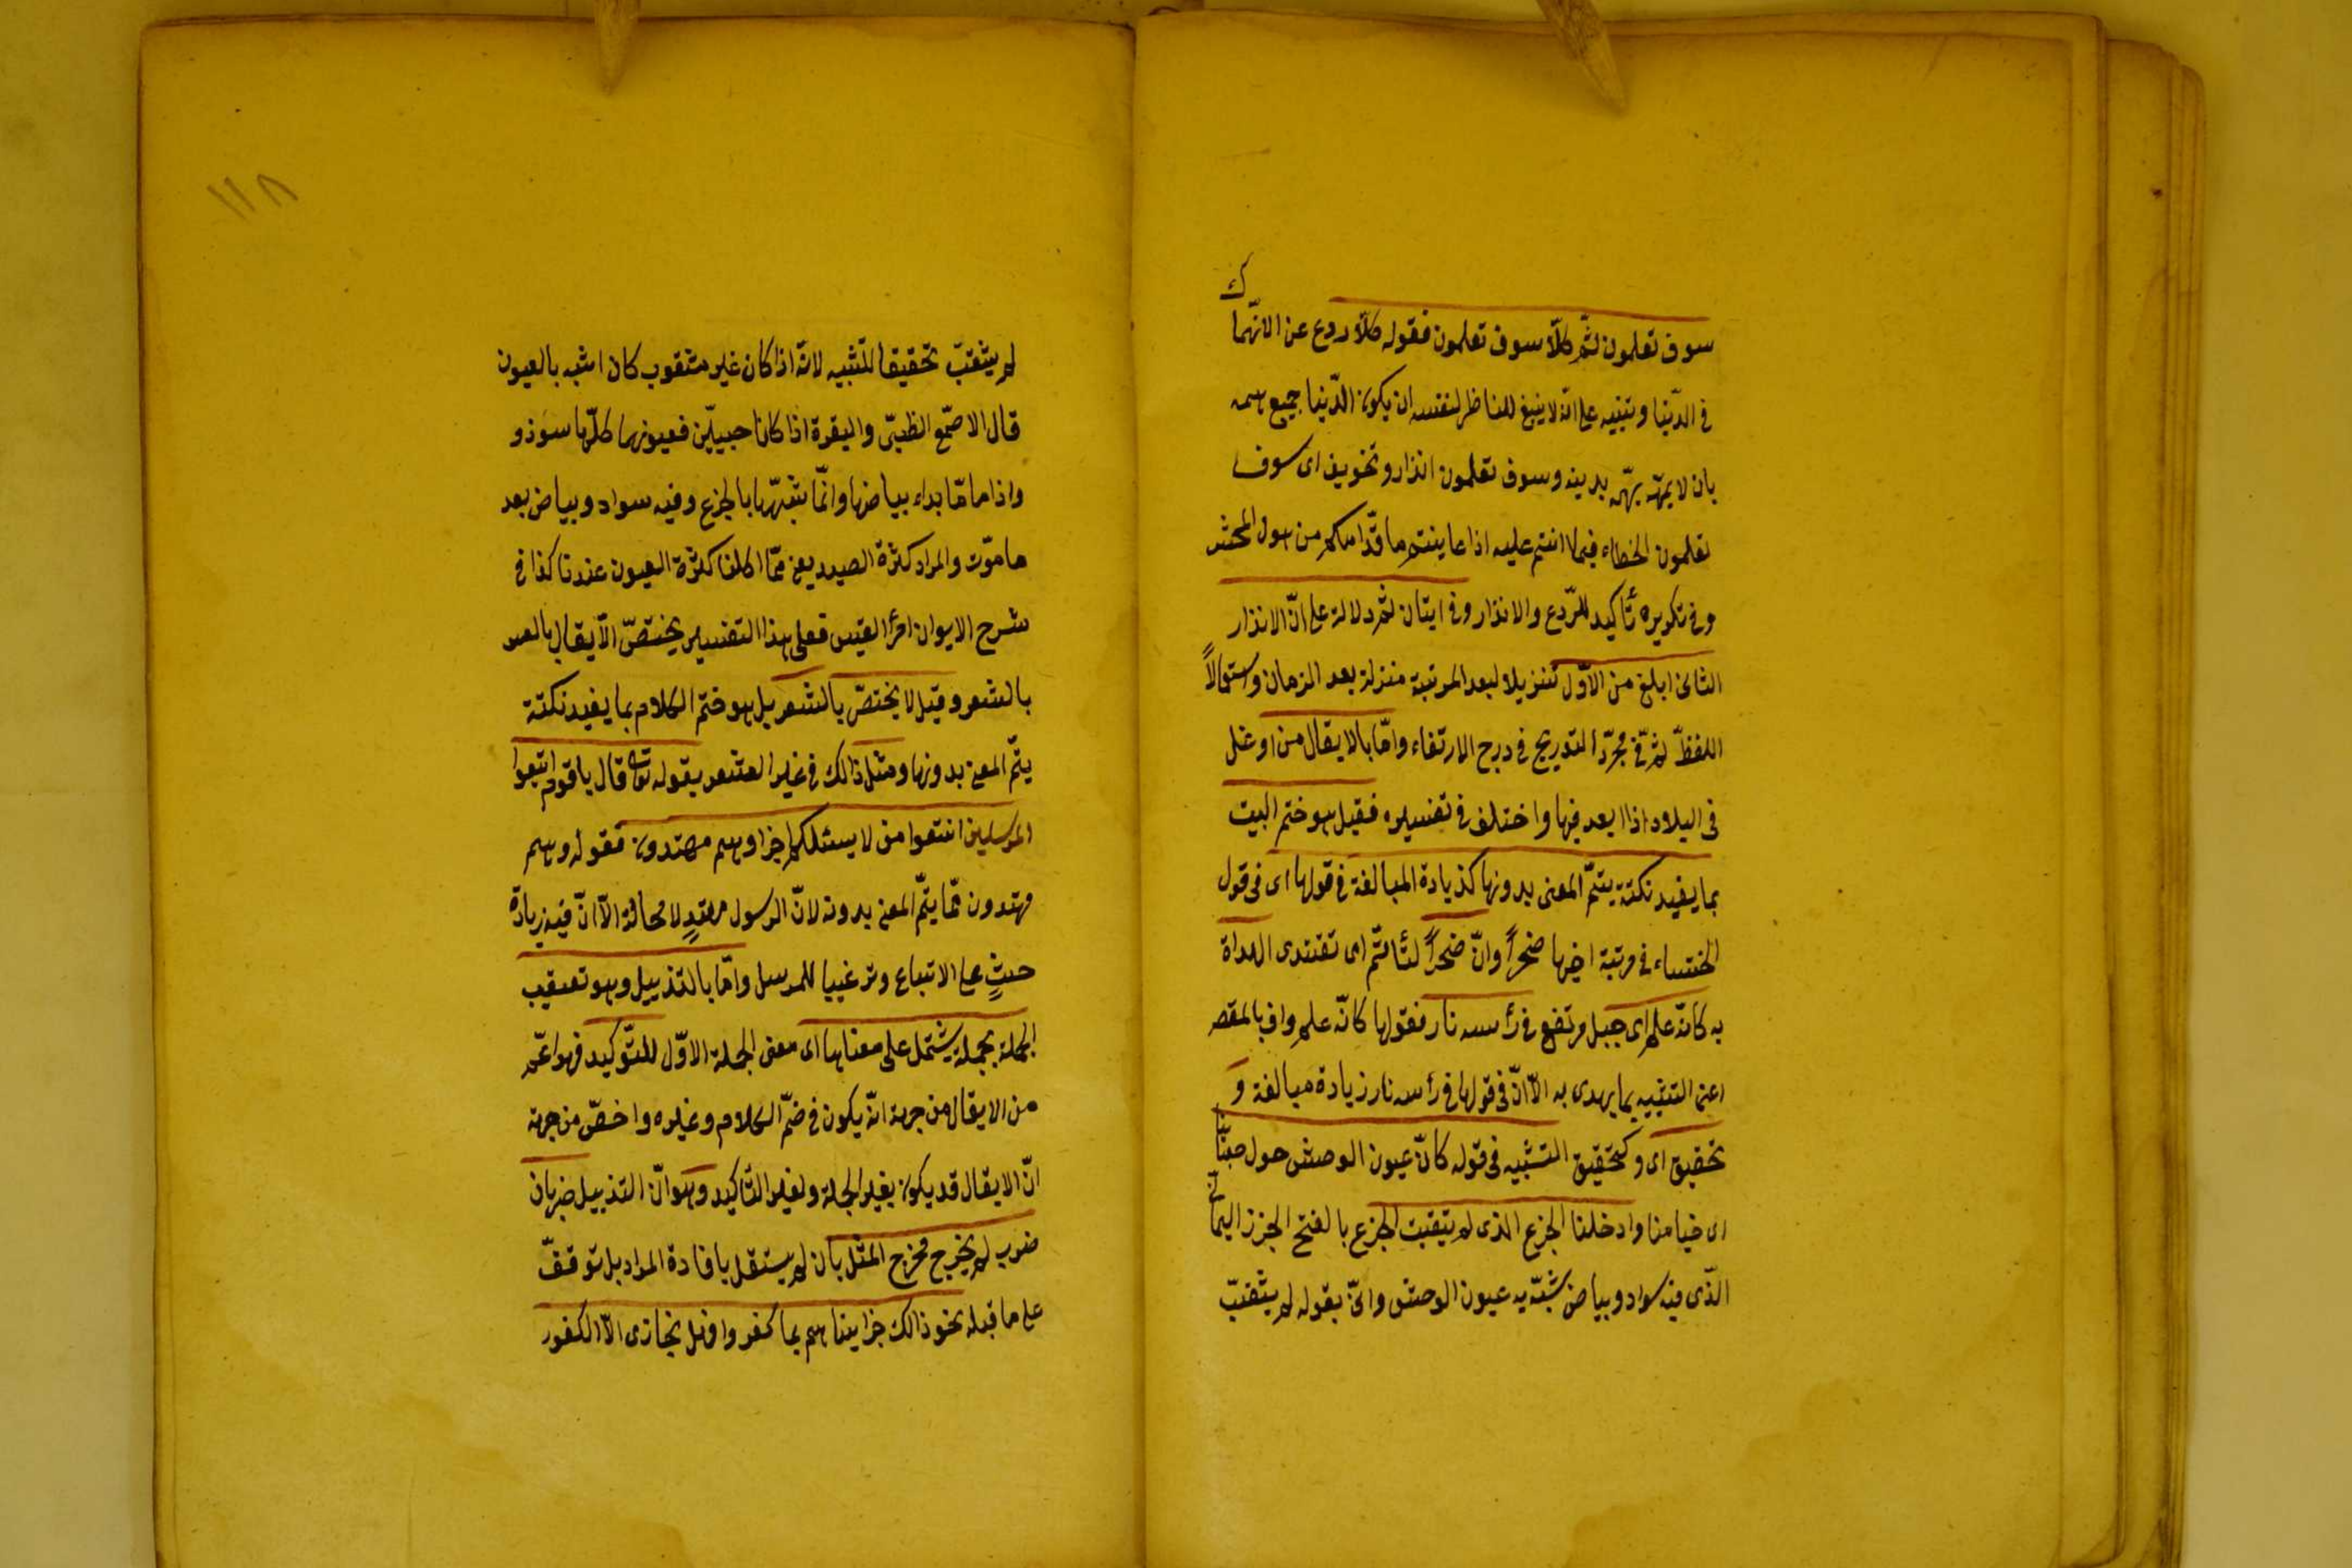 سوف تعلمون ثمّ كلّا سوف تعلمون فقوله كلّا ردع عن الانهما
ك
فى الدّنيا وتنبيه على انّه لا ينبغى للناظر لنفسه ان يكون الدّنيا جميع همه
بان لا يهتمّ بدينه وسوف تعلمون انذار وتخويف اى سوف
تعلمون الخطاء فيما انتم عليه اذا عاينتم ما قدّامكم من هول المحشر
وفى تكريره تأكيد للرّدع والانذار وفى اتيان ثم دلالة على انّ الانذار
الثانى ابلغ من الاوّل تنزيلا لبعد المرتبة منزلة بعد الزمان واستعمالاً
اللفظ ثمّ فى مجرّد التدريج فى درج الارتقاء وامّا بالايغال من اوغل
فى البلاد اذا ابعد فيها واختلف فى تفسيره فقيل هو ختم البيت
بما يفيد نكتة يتمّ المعنى بدونها كزيادة المبالغة فى قولها اى فى قول
الخنساء فى مرتبة اخيها صخراً وانّ صخراً لتأتمّ اى تقتدى الهداة
به كانّه علم اى جبل مرتفع فى رأسه نار فقولها كانّه علم واف بالمقصد
اعنى التشبيه بما يهدى به الّا انّ فى قولها فى رأسه نار زيادة مبالغة و
تحقيق اى وكتحقيق التشبيه فى قوله كانّ عيون الوحش حول خبائنا
اى خيامنا وادخلنا الجزع الذى لم يثقب الجزع بالفتح الخرز اليمانى
الّذى فيه سواد وبياض شبّه به عيون الوحش واتى بقوله لم يثقّب
١١٨
لم يثقب تحقيقا للتشبيه لانّه اذا كان غير مثقوب كان اشبه بالعيون
قال الاصمّع الظبىّ والبقرة اذا كانا حييّن فعيونهما كلّها سود و
واذا ماتا بداء بياضها وانّما شبّهها بالجزع وفيه سواد وبياض بعد
ما موّت والمراد كثرة الصيد يعنى ممّا اكلنا كثرة العيون عندنا كذا فى
شرح الايوان امرأ القيس فعلى هذا التفسير يختصّ الايغال بالعد
بالشعر وقيل لا يختصّ بالشعر بل هو ختم الكلام بما يفيد نكتة
يتمّ المعنى بدونها ومثل ذالك فى غير الشعر بقوله تعالى قال يا قوم اتبعوا
المرسلين اتبعوا من لا يسئلكم اجرا وهم مهتدون فقوله وهم
مهتدون ممّا يتمّ المعنى بدونه لانّ الرسول مهتدٍ لا محالة الّا انّ فيه زيادة
حثٍ على الاتباع وترغيبا للرسل وامّا بالتذييل وهو تعقيب
الجملة بجملة يشتمل على معناها اى معنى الجملة الاوّل للتّوكيد فهو اعمّ
من الايغال من جهة انّه يكون فى ختم الكلام وغيره واخصّ من جهة
انّ الايغال قد يكون بغير الجملة ولغير التأكيد وهو انّ التذييل ضربان
ضرب لم يخرج مخرج المثل بان لم يستقل بافادة المراد بل توقفّ
على ما قبله نحو ذالك جزايناهم بما كفروا وهل نجازى الّا الكفور